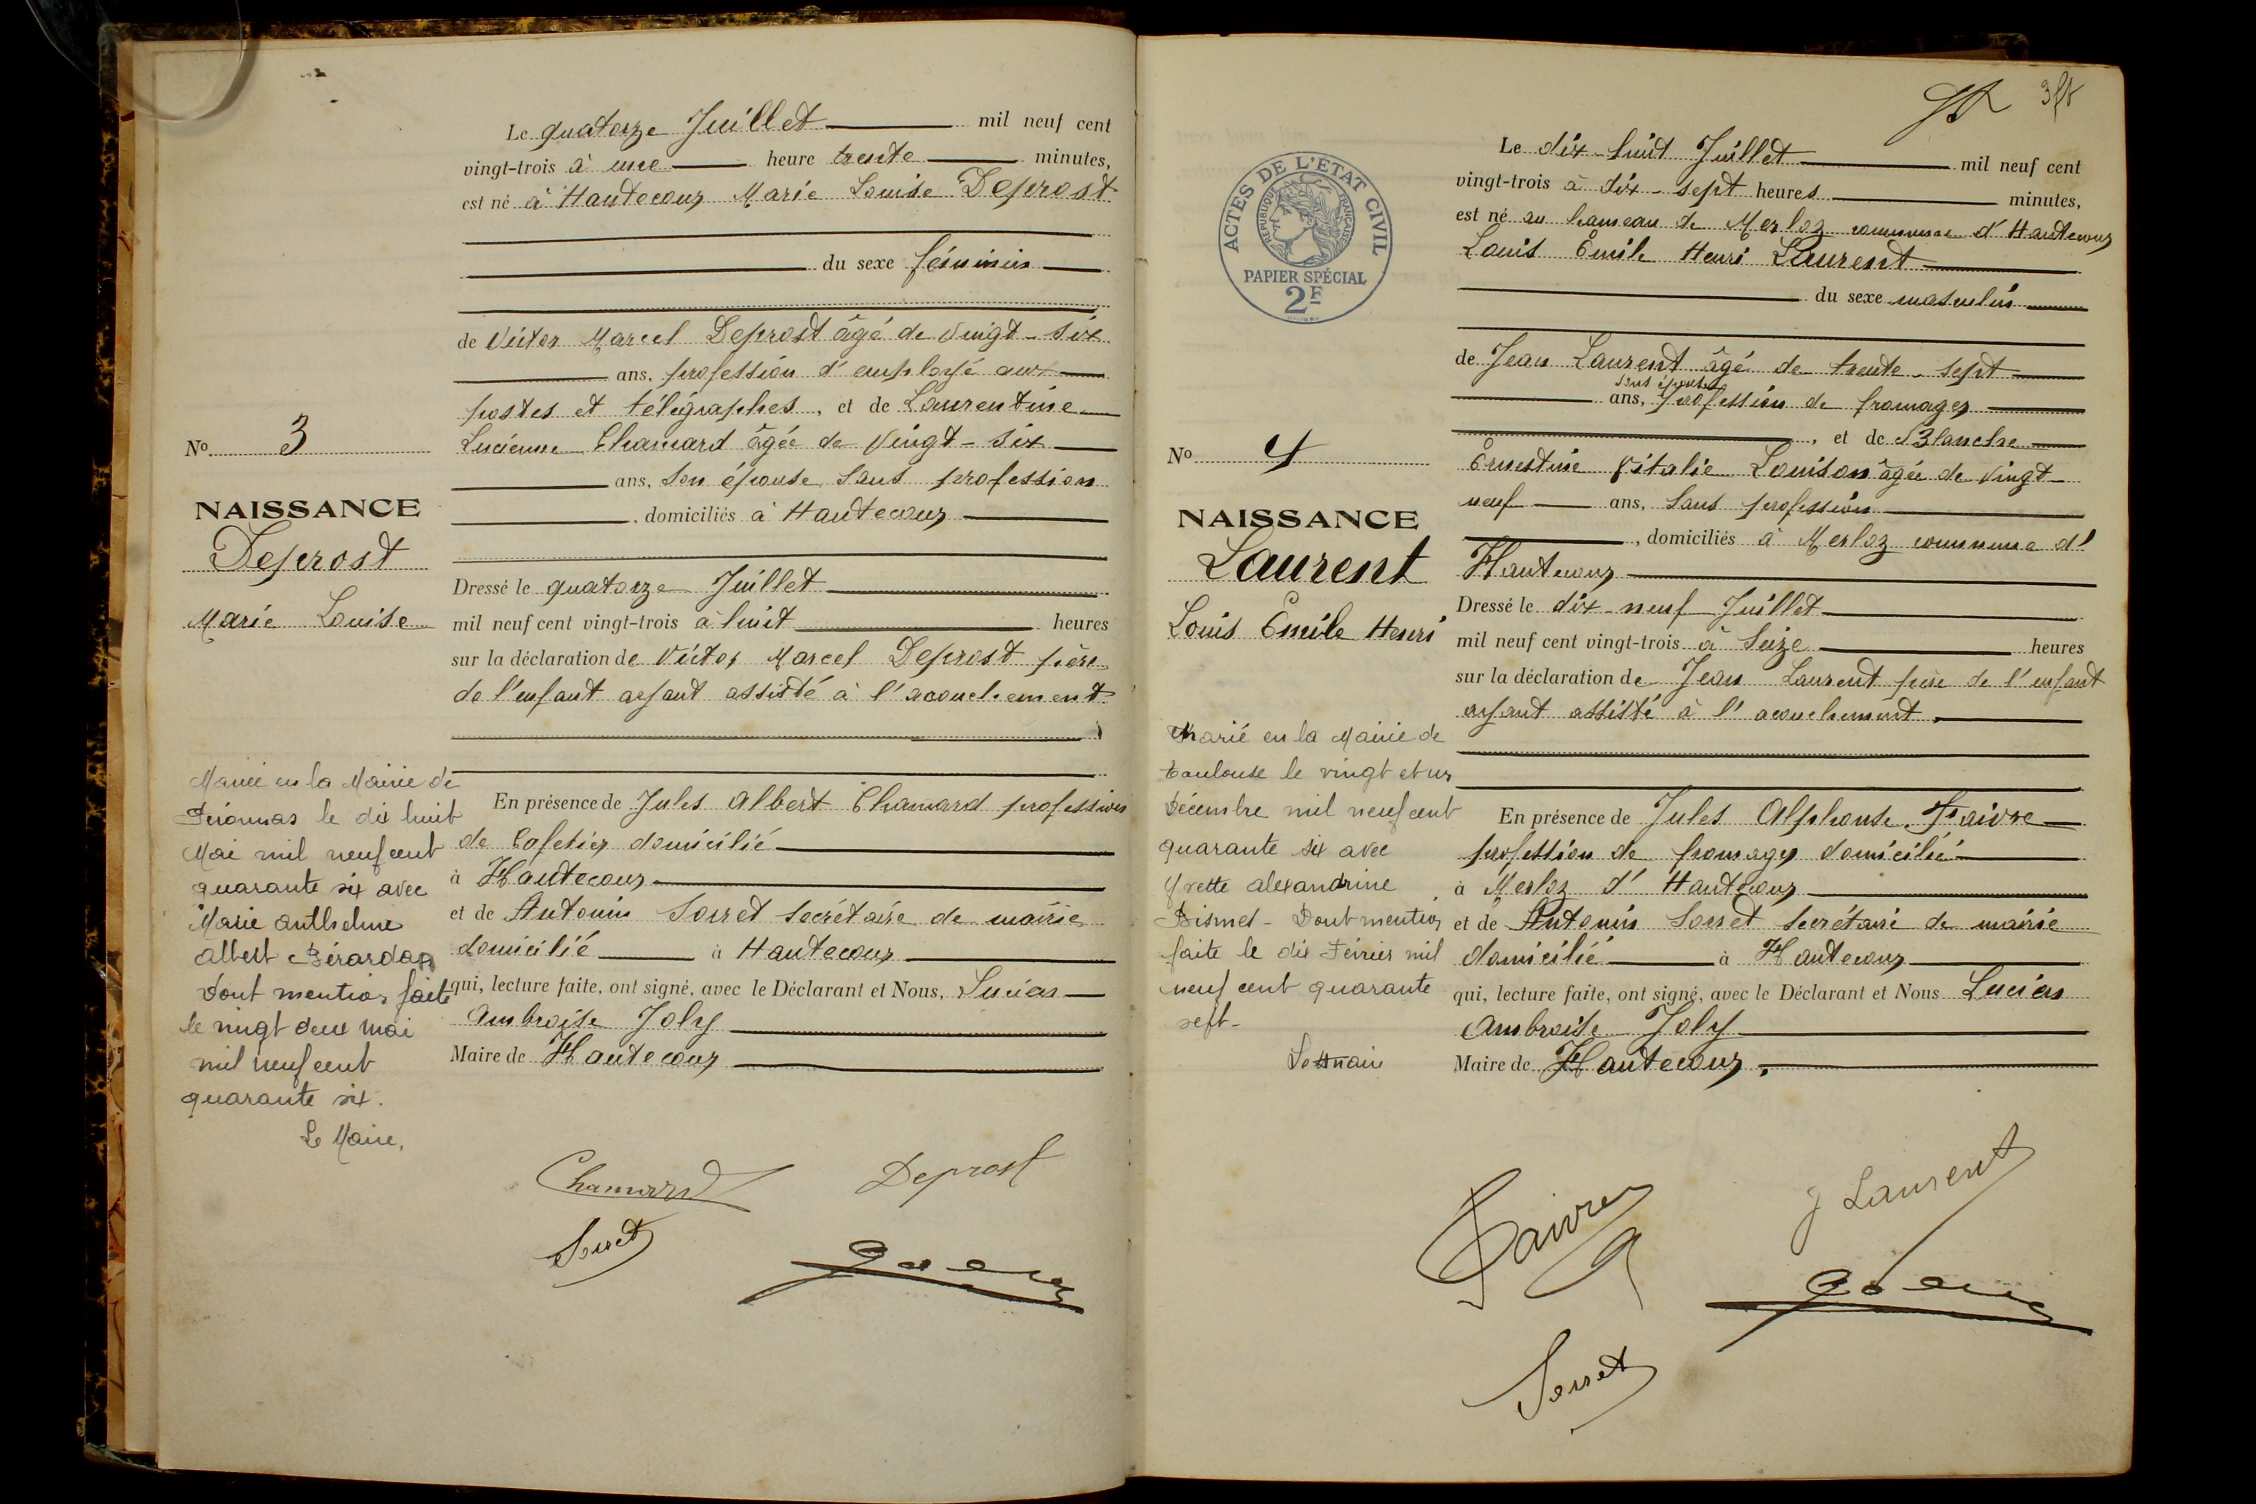 Le quatorze Juillet mil neuf cent
vingt-trois à une heure trente minutes,
est né à Hautecour Marie Louise Deprost
du sexe féminin
de Victor Marcel Deprost âgé de Vingt-six
ans, profession d'employé aux
postes et télégraphes, et de Laurentine
Lucienne Chamard âgée de Vingt-six
ans, son épouse sans profession
, domiciliés à Hautecour
Dressé le quatorze Juillet
mil neuf cent vingt-trois à huit heures
sur la déclaration de Victor Marcel Deprost père
de l'enfant ayant assisté à l'acouchement
En présence de Jules Albert Chamard profession
de Cafetier domicilié
à Hautecour
et de Antonin Sorret secrétaire de mairie
domicilié à Hautecour
qui, lecture faite, ont signé, avec le Déclarant et Nous, Lucien
Ambroise Joly
Maire de Hautecour
No 3
NAISSANCE
Deprost
Marie Louise
Mariée en la Mairie de
Péronnas le dix huit
Mai mil neuf cent
quarante six avec
Marie Anthelme
Albert Bérardan
Dont mention faite
le vingt deux Mai
mil neuf cent
quarante six.
Le Maire,
Chamard
Deprost
Sorret
3
ACTES DE L'ETAT CIVIL
REPUBLIQUE FRANÇAISE
PAPIER SPÉCIAL
2F
Le dix-huit Juillet mil neuf cent
vingt-trois à dix-sept heures minutes,
est né au hameau de Merloz commune d'Hautecour
Louis Emile Henri Laurent
du sexe masculin
de Jean Laurent âgé de trente-sept
sans épouse
ans, profession de fromager
, et de Blanche
Ernestine Vitalie Louison âgée de Vingt-
neuf ans, sans profession
, domiciliés à Merloz commune d'
Hautecour
Dressé le dix-neuf Juillet
mil neuf cent vingt-trois à Seize heures
sur la déclaration de Jean Laurent père de l'enfant
ayant assisté à l'acouchement.
En présence de Jules Alphonse Faivre
profession de fromager domicilié
à Merloz d'Hautecour
et de Antonin Sorret secrétaire de mairie
domicilié à Hautecour
qui, lecture faite, ont signé, avec le Déclarant et Nous Lucien
Ambroise Joly
Maire de Hautecour.
No 4
NAISSANCE
Laurent
Louis Emile Henri
Marié en la Mairie de
Toulouse le vingt et un
Décembre mil neuf cent
quarante six avec
Yvette Alexandrine
Bismes - Dont mention
faite le dix Février mil
neuf cent quarante
sept-
Le Maire
Faivre
J Laurent
Sorret